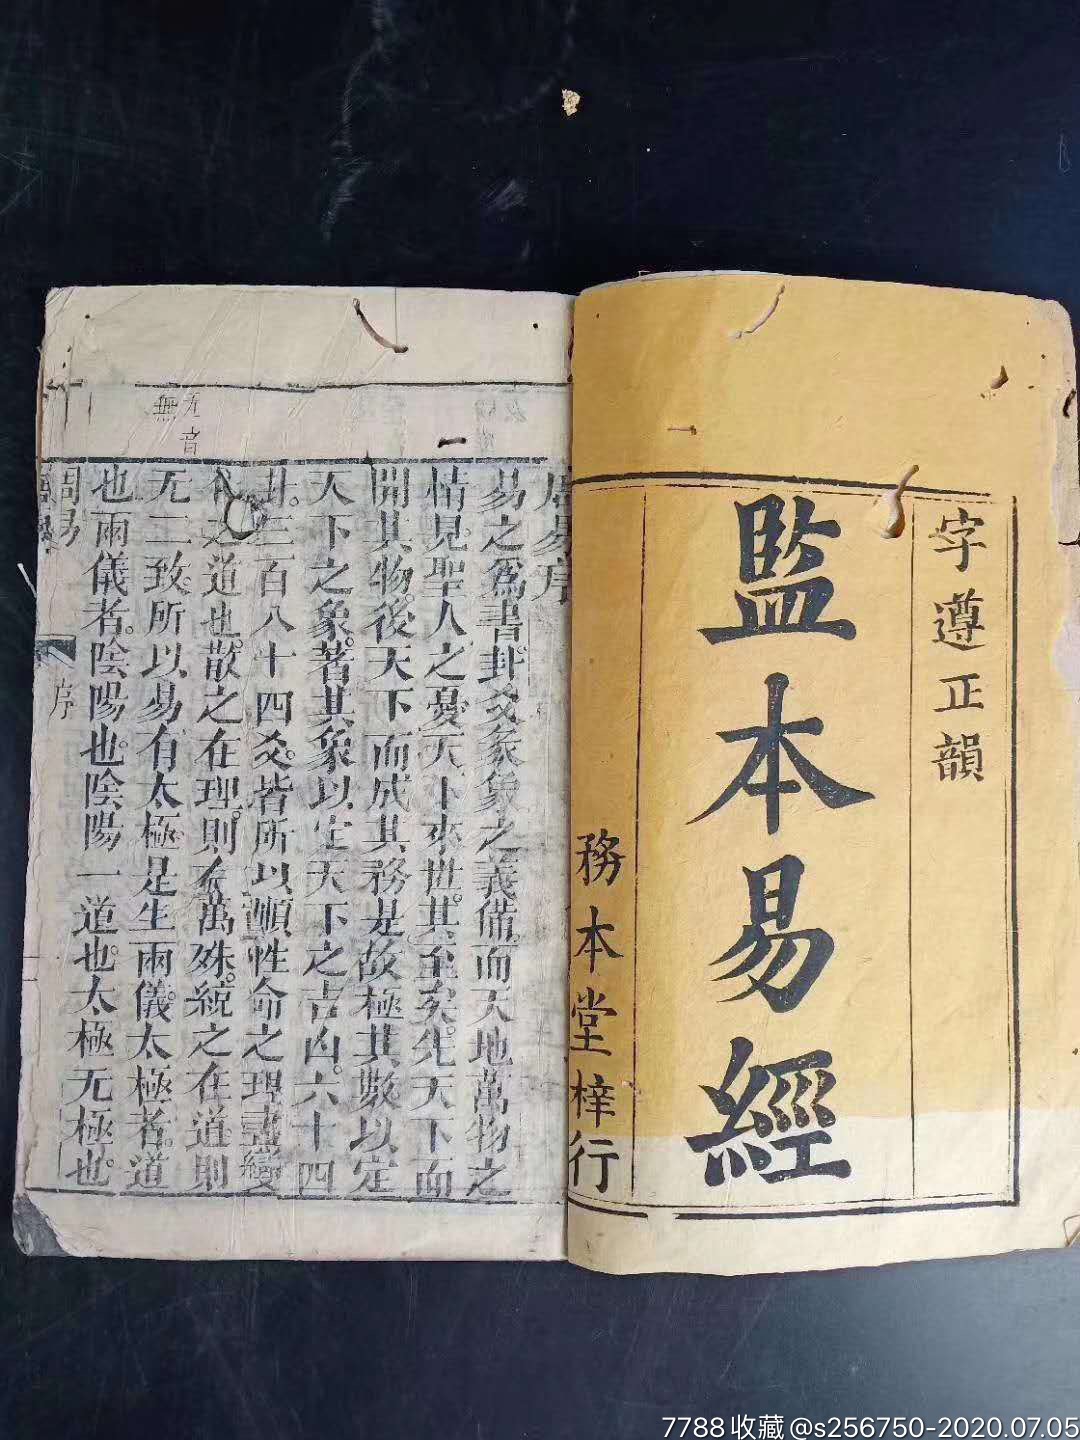 字遵正韻
監本易經
務本堂梓行
周易序
易之爲書卦爻彖象之義備。而天地萬物之
情見。聖人之憂天下來世。其至矣。先天下而
開其物。後天下而成其務。是故極其數以定
天下之象。著其象以定天下之吉凶。六十四
卦。三百八十四爻。皆所以順性命之理。盡變
化之道也。散之在理。則有萬殊。統之在道。則
无二致。所以易有太極。是生兩儀。太極者。道
也。兩儀者。陰陽也。陰陽一道也。太極无極也。
无音
無
周易
序
7788收藏@s256750-2020.07.05